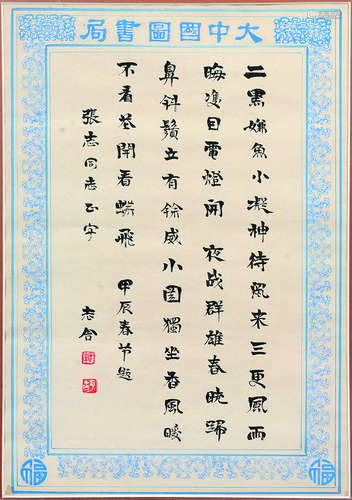 大中国圖書局
二黑嫌魚小凝神待鼠来三更風雨
晦雙目電燈開 夜战群雄春晓歸
鼻斜鬚立有餘威小園獨坐春風暖
不看花開看蝶飛 甲辰春节题
張志同志正字
老舍
福
福